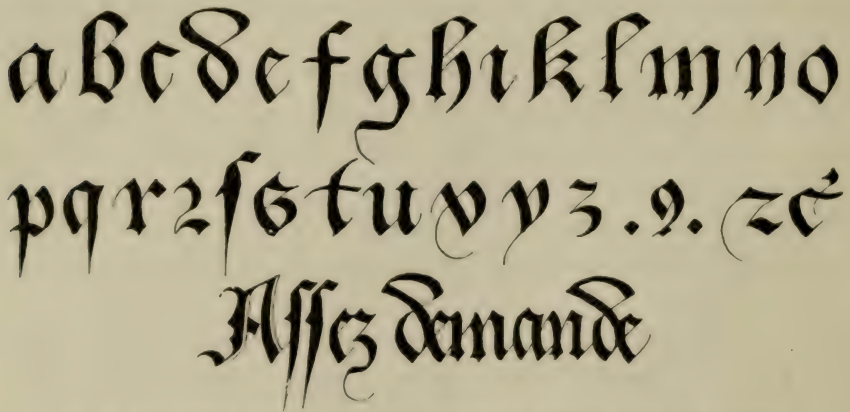 a b c d e f g h ı k l m n o
p q r ꝛ ſ s t u v y z . 9 . ⁊c
Aſſez demande